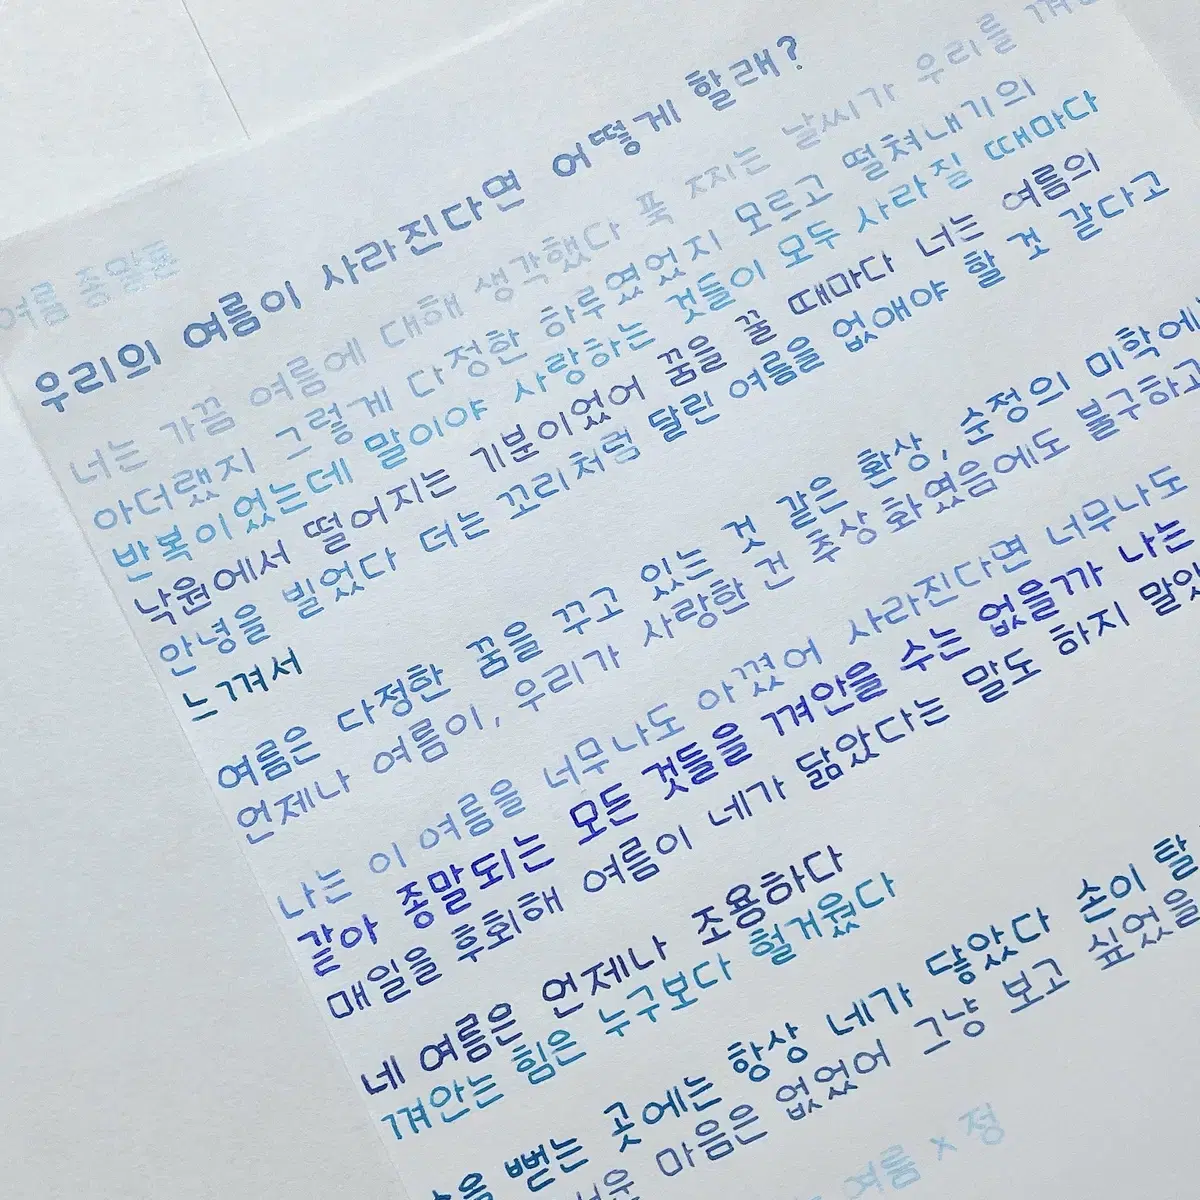 여름 종말론
우리의 여름이 사라진다면 어떻게 할래?
너는 가끔 여름에 대해 생각했다 푹 찌는 날씨가 우리를 껴안
아더랬지 그렇게 다정한 하루였었지 모르고 떨쳐내기의
반복이었는데 말이야 사랑하는 것들이 모두 사라질 때마다
낙원에서 떨어지는 기분이었어 꿈을 꿀 때마다 너는 여름의
안녕을 빌었다 더는 꼬리처럼 달린 여름을 없애야 할 것 같다고
느껴서
여름은 다정한 꿈을 꾸고 있는 것 같은 환상, 순정의 미학에
언제나 여름이, 우리가 사랑한 건 추상화였음에도 불구하고
나는 이 여름을 너무나도 아꼈어 사라진다면 너무나도
같아 종말되는 모든 것들을 껴안을 수는 없을까 나는
매일을 후회해 여름이 네가 닮았다는 말도 하지 말았
네 여름은 언제나 조용하다
껴안는 힘은 누구보다 헐거웠다
뻗는 곳에는 항상 네가 닿았다 손이 탈
마음은 없었어 그냥 보고 싶었을
여름 × 정